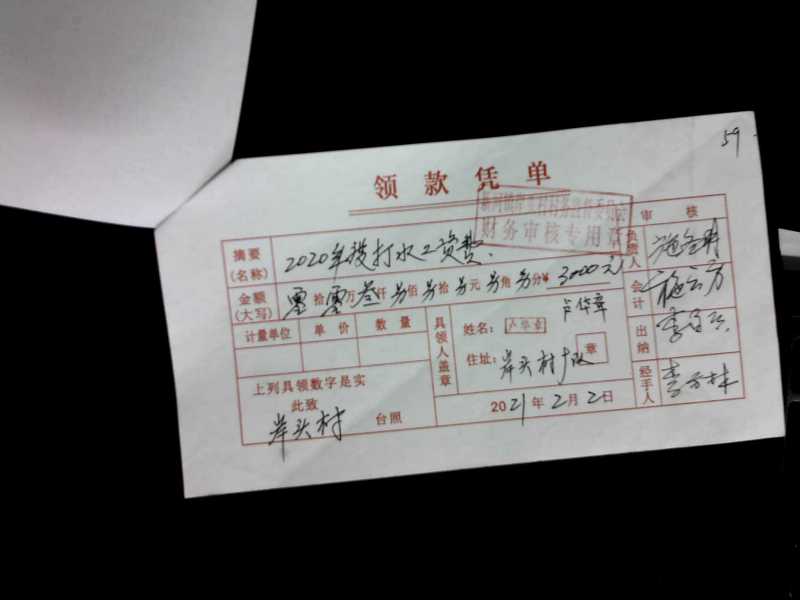 59
领款凭单
财务审核专用章
审核
摘要(名称) 2020年拨打水工资费.
金额(大写) 零拾零万叁仟另佰另拾另元另角另分¥ 3000元
计量单位 单价 数量
具领人盖章
姓名: 卢华章
住址: 岸头村
章
上列具领数字是实
此致
岸头村 台照
2021年2月2日
负责人
会计
出纳
经手人